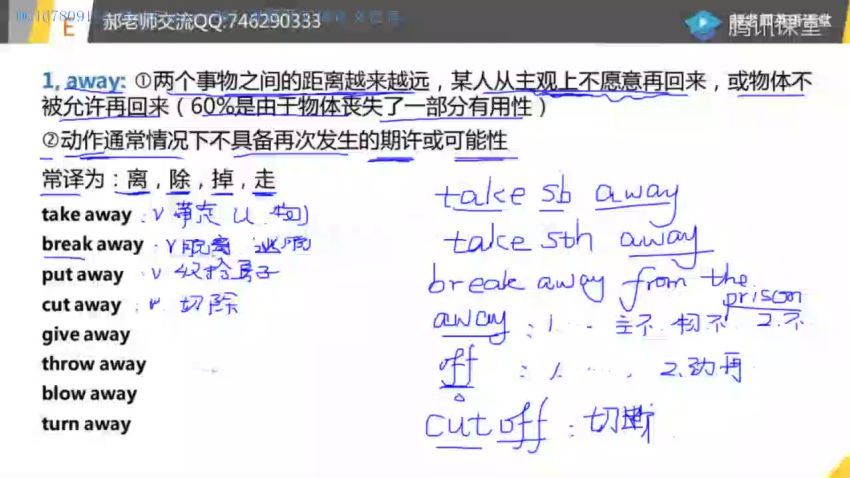 E
郝老师交流QQ:746290333
腾讯课堂
1, away: ①两个事物之间的距离越来越远，某人从主观上不愿意再回来，或物体不
被允许再回来（60%是由于物体丧失了一部分有用性）
②动作通常情况下不具备再次发生的期许或可能性
常译为：离，除，掉，走
take away : v 带走 (人 物)
break away · v 脱离 逃脱
put away : v 收拾房子
cut away : v 切除
give away
throw away
blow away
turn away
take sb away
take sth away
break away from the
prison
away : 1. ... 主不 物不 2.不
off : 1. .... . 2.动再
cut off : 切断